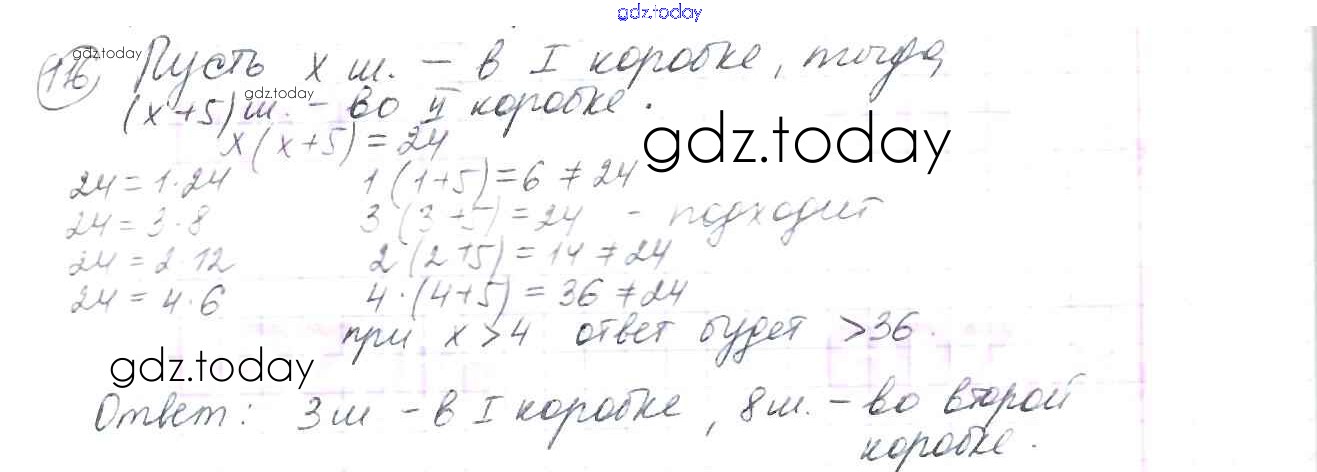 gdz.today
176 Пусть x ш. – в I коробке, тогда
gdz.today
(x+5) ш. – во II коробке.
gdz.today
x(x+5)=24
gdz.today
24=1·24 1(1+5)=6≠24
24=3·8 3(3+5)=24 - подходит
24=2·12 2(2+5)=14≠24
24=4·6 4·(4+5)=36≠24
при x>4 ответ будет >36.
gdz.today
Ответ: 3ш – в I коробке, 8ш. – во второй
коробке.